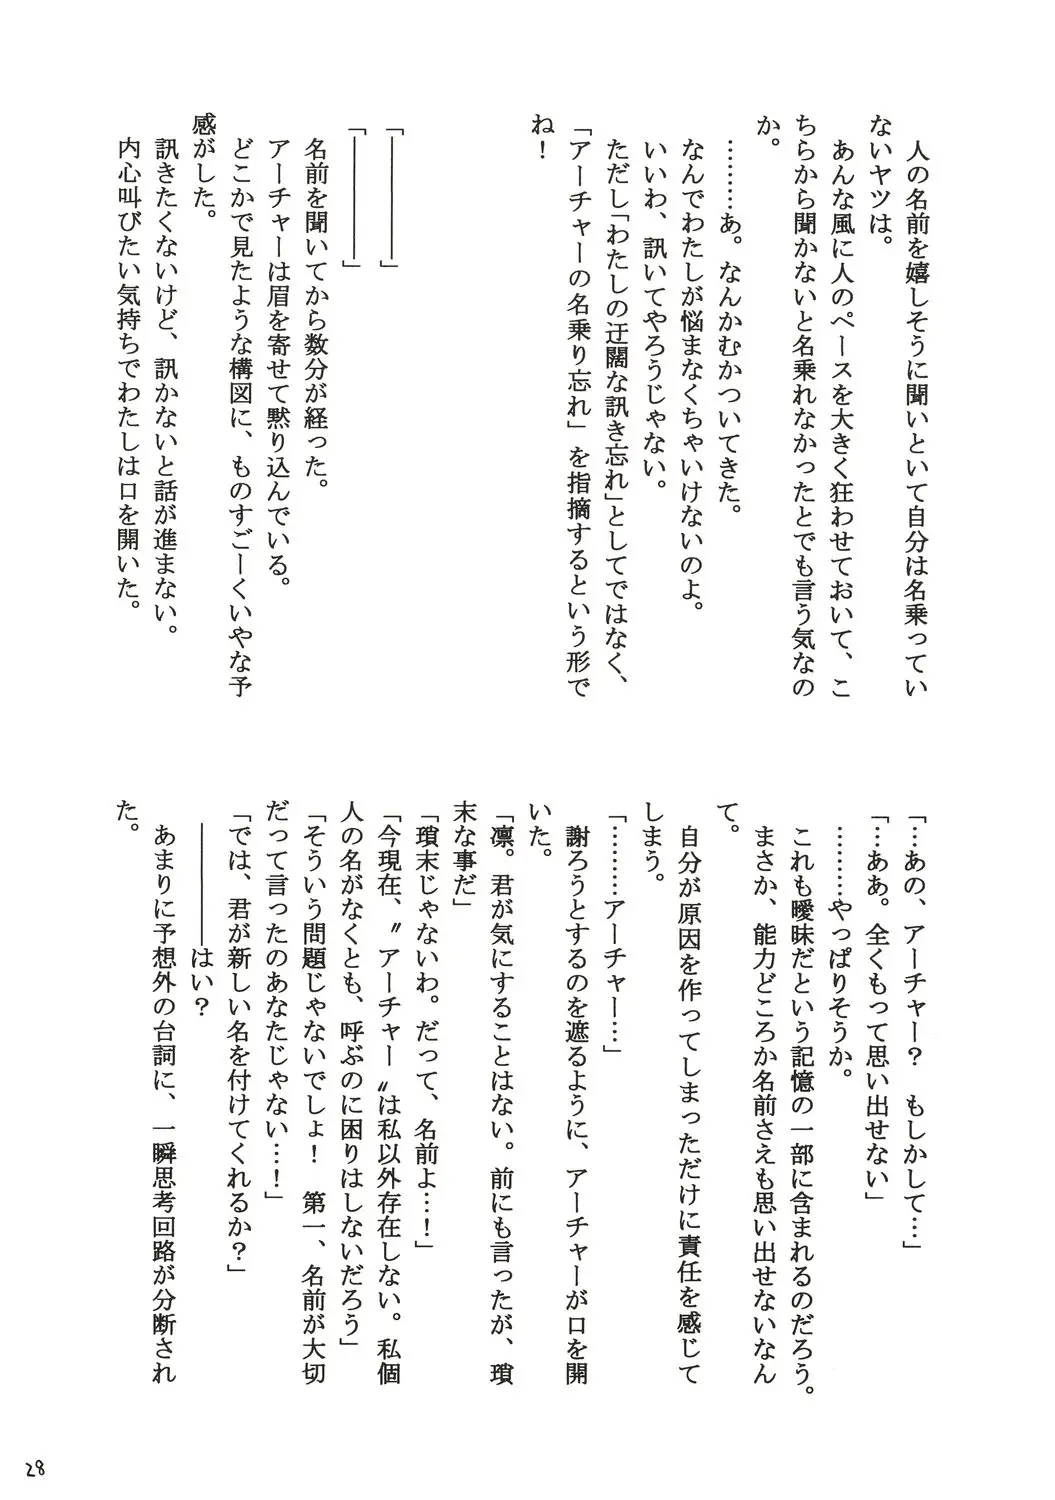 人の名前を嬉しそうに聞いといて自分は名乗ってい
ないヤツは。
　あんな風に人のペースを大きく狂わせておいて、こ
ちらから聞かないと名乗れなかったとでも言う気なの
か。
　………あ。なんかむかついてきた。
　なんでわたしが悩まなくちゃいけないのよ。
　いいわ、訊いてやろうじゃない。
　ただし「わたしの迂闊な訊き忘れ」としてではなく、
「アーチャーの名乗り忘れ」を指摘するという形で
ね！
「―――――」
「―――――」
　名前を聞いてから数分が経った。
　アーチャーは眉を寄せて黙り込んでいる。
　どこかで見たような構図に、ものすごーくいやな予
感がした。
　訊きたくないけど、訊かないと話が進まない。
　内心叫びたい気持ちでわたしは口を開いた。
「…あの、アーチャー？　もしかして…」
「…ああ。全くもって思い出せない」
　………やっぱりそうか。
　これも曖昧だという記憶の一部に含まれるのだろう。
　まさか、能力どころか名前さえも思い出せないなん
て。
　自分が原因を作ってしまっただけに責任を感じて
しまう。
「………アーチャー…」
　謝ろうとするのを遮るように、アーチャーが口を開
いた。
「凛。君が気にすることはない。前にも言ったが、瑣
末な事だ」
「瑣末じゃないわ。だって、名前よ…！」
「今現在、〝アーチャー〟は私以外存在しない。私個
人の名がなくとも、呼ぶのに困りはしないだろう」
「そういう問題じゃないでしょ！　第一、名前が大切
だって言ったのあなたじゃない…！」
「では、君が新しい名を付けてくれるか？」
　―――――はい？
　あまりに予想外の台詞に、一瞬思考回路が分断され
た。
28